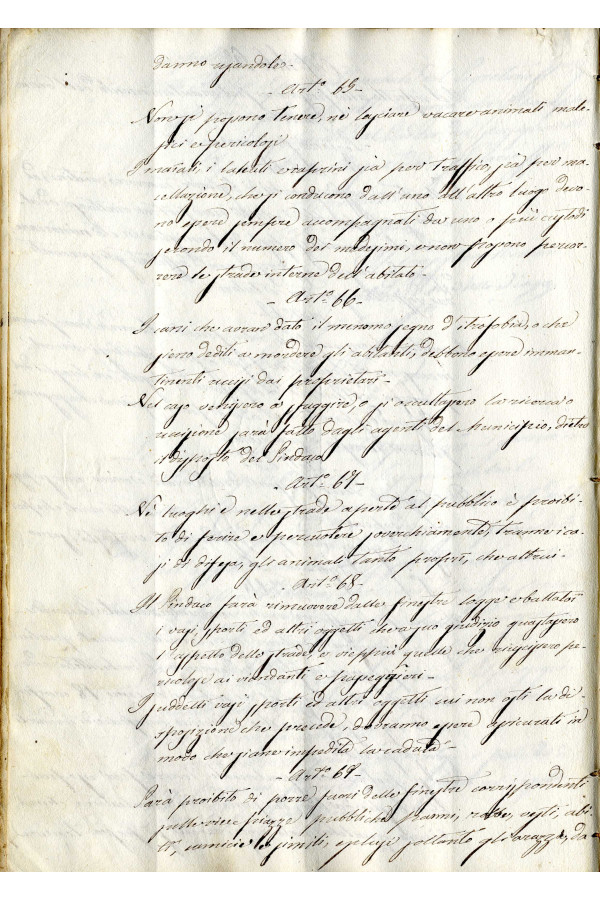 danno usandole -
- Art.° 65 -
Non si possono tenere, nè lasciare vacare animali male-
fici e pericolosi
I maiali, i lattenti e caprini sia per traffico, sia per ma-
cellazione, che si conducono dall'uno all'altro luogo devo-
no essere sempre accompagnati da uno o più custodi
secondo il numero dei medesimi, e non possono percor-
rere le strade interne dell'abitato -
- Art.° 66 -
I cani che avran dato il menomo segno d'itrofobia, o che
sieno dediti a mordere gli abitanti, debbono essere imman-
tinenti uccisi dai proprietari -
Nel caso venissero a fuggire, o si occultassero la ricerca o
uccisione sarà fatta dagli agenti del Municipio, dietro
disposto del Sindaco
- Art.° 67 -
Nè luoghi e nelle strade aperte al pubblico è proibi-
to di ferire e percuotere soverchiamente, tranne i ca-
si di difesa, gli animali tanto proprî, che altrui -
- Art.° 68 -
Il Sindaco farà rimuovere dalle finestre logge e ballatoi
i vasi, sporti ed altri oggetti che a suo giudizio guastassero
l'aspetto delle strade, e vieppiù quelle che riuscissero pe-
ricolose ai viandanti e passeggieri -
I suddetti vasi sporti ed altri oggetti cui non osti la di-
sposizione che precede, dovranno essere assicurati in
modo che siane impedita la caduta -
- Art.° 69 -
Sarà proibito di porre fuori delle finestre corrispondenti
sulle vie e piazze pubbliche panni, robbe, vesti, abi-
ti, camicie e simili, esclusi soltanto gli arazzi, da